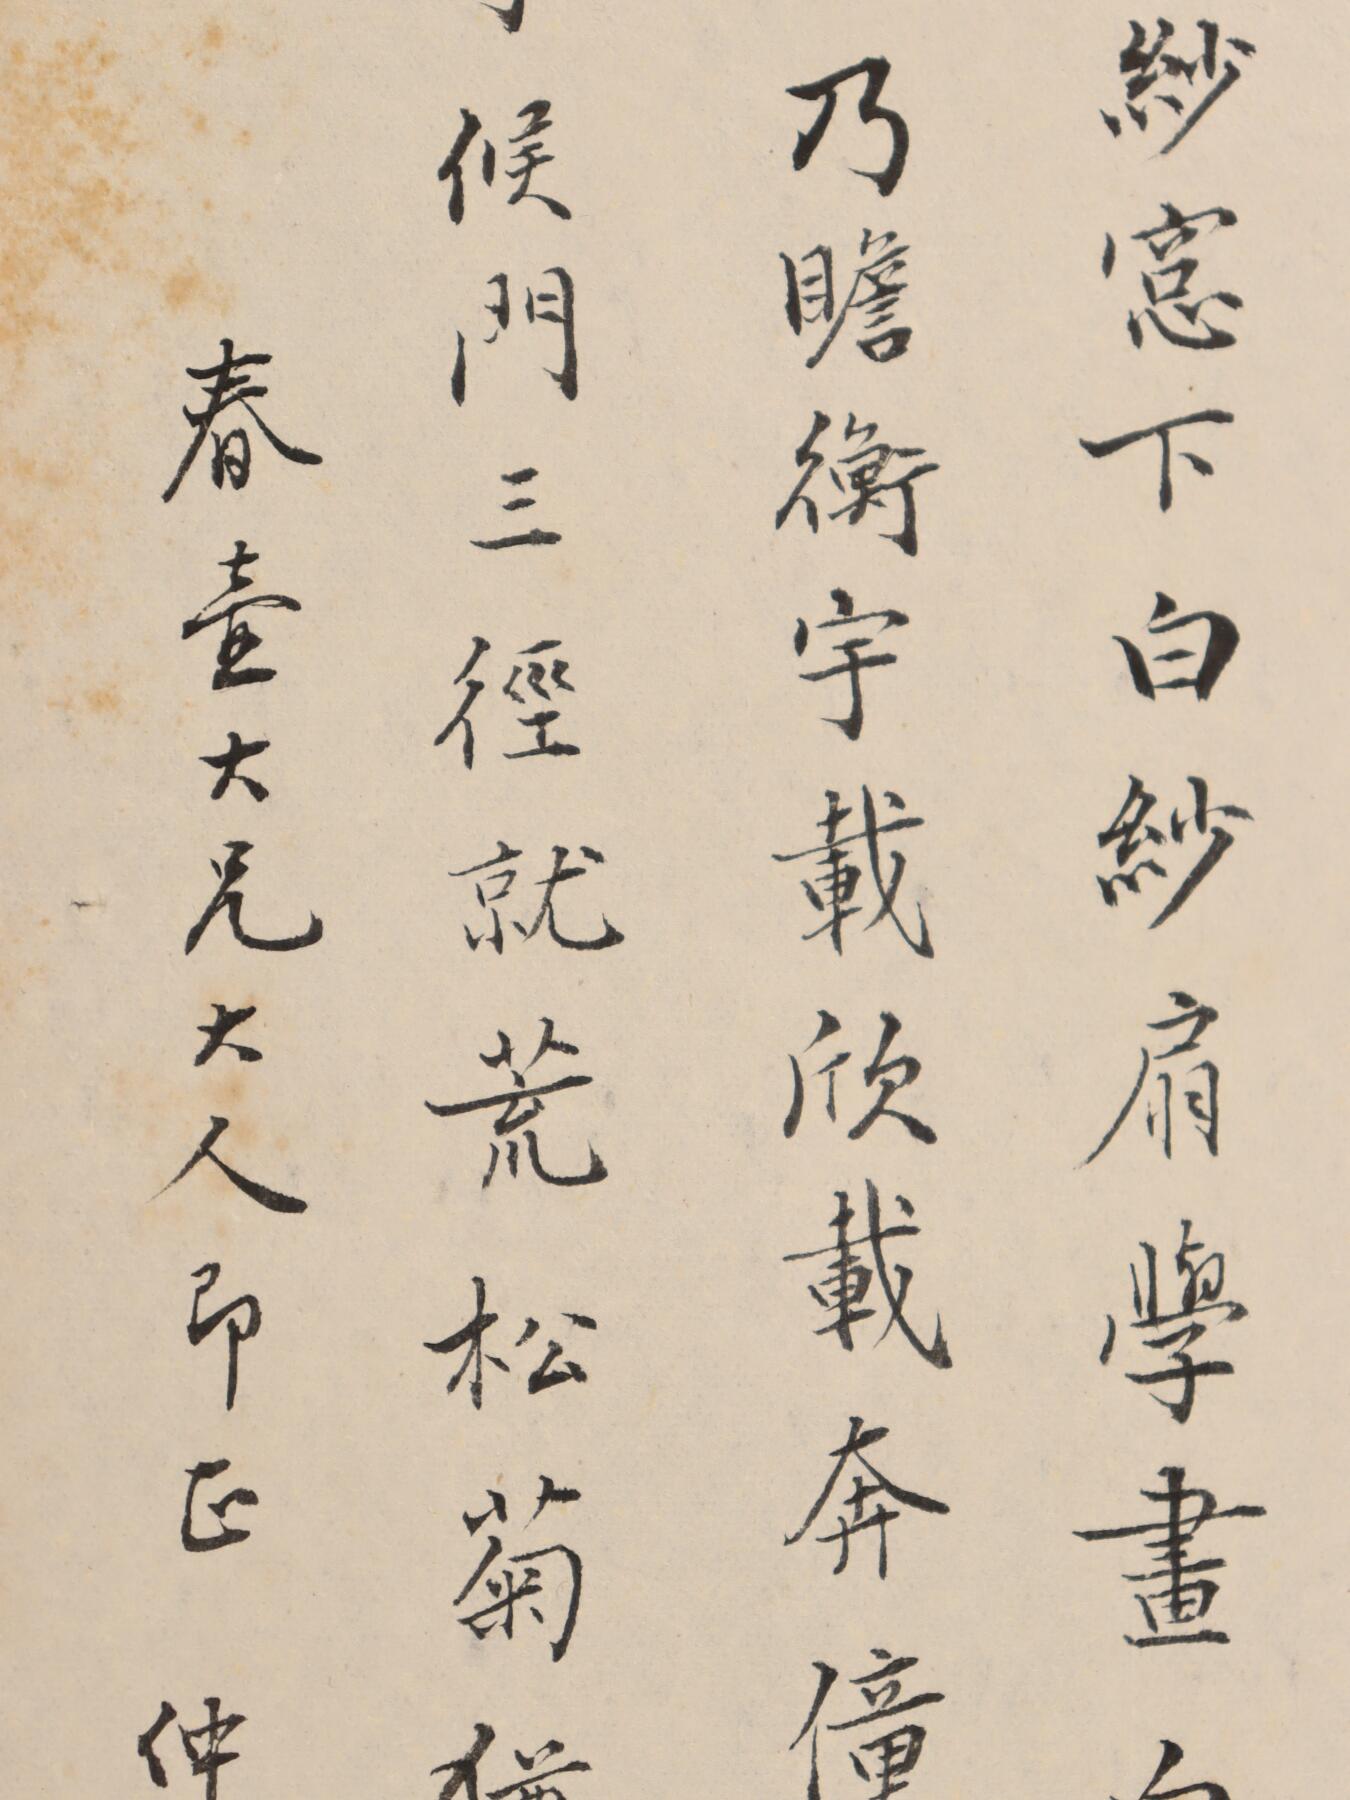 紗窓下白紗扇學畫
乃瞻衡宇載欣載奔僮
候門三徑就荒松菊猶
春臺大兄大人即正 仲